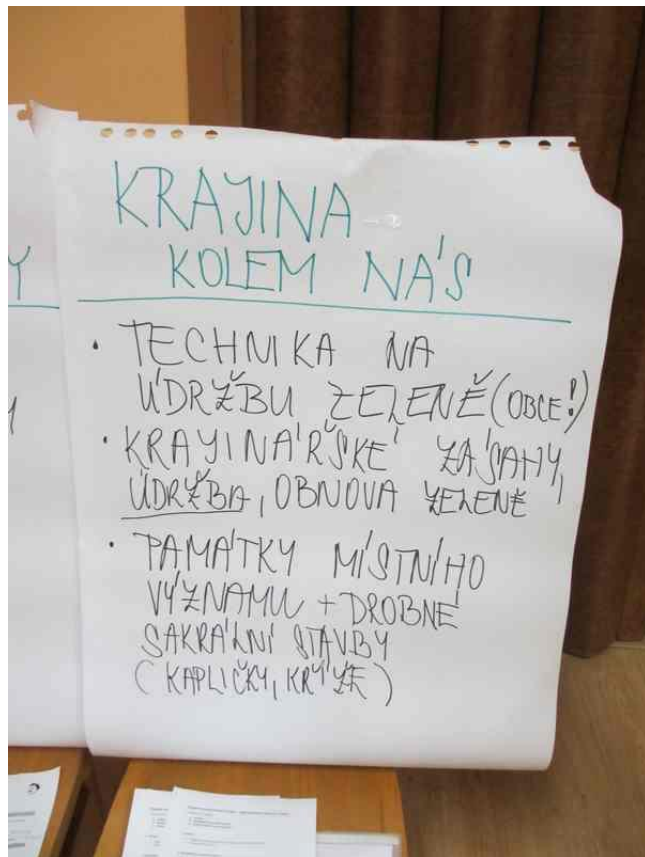 KRAJINA
KOLEM NÁS
• TECHNIKA NA
ÚDRŽBU ZELENĚ (OBCE!)
• KRAJINÁŘSKÉ ZÁSAHY,
ÚDRŽBA, OBNOVA ZELENĚ
• PAMÁTKY MÍSTNÍHO
VÝZNAMU + DROBNÉ
SAKRÁLNÍ STAVBY
(KAPLIČKY, KŘÍŽE)
Y